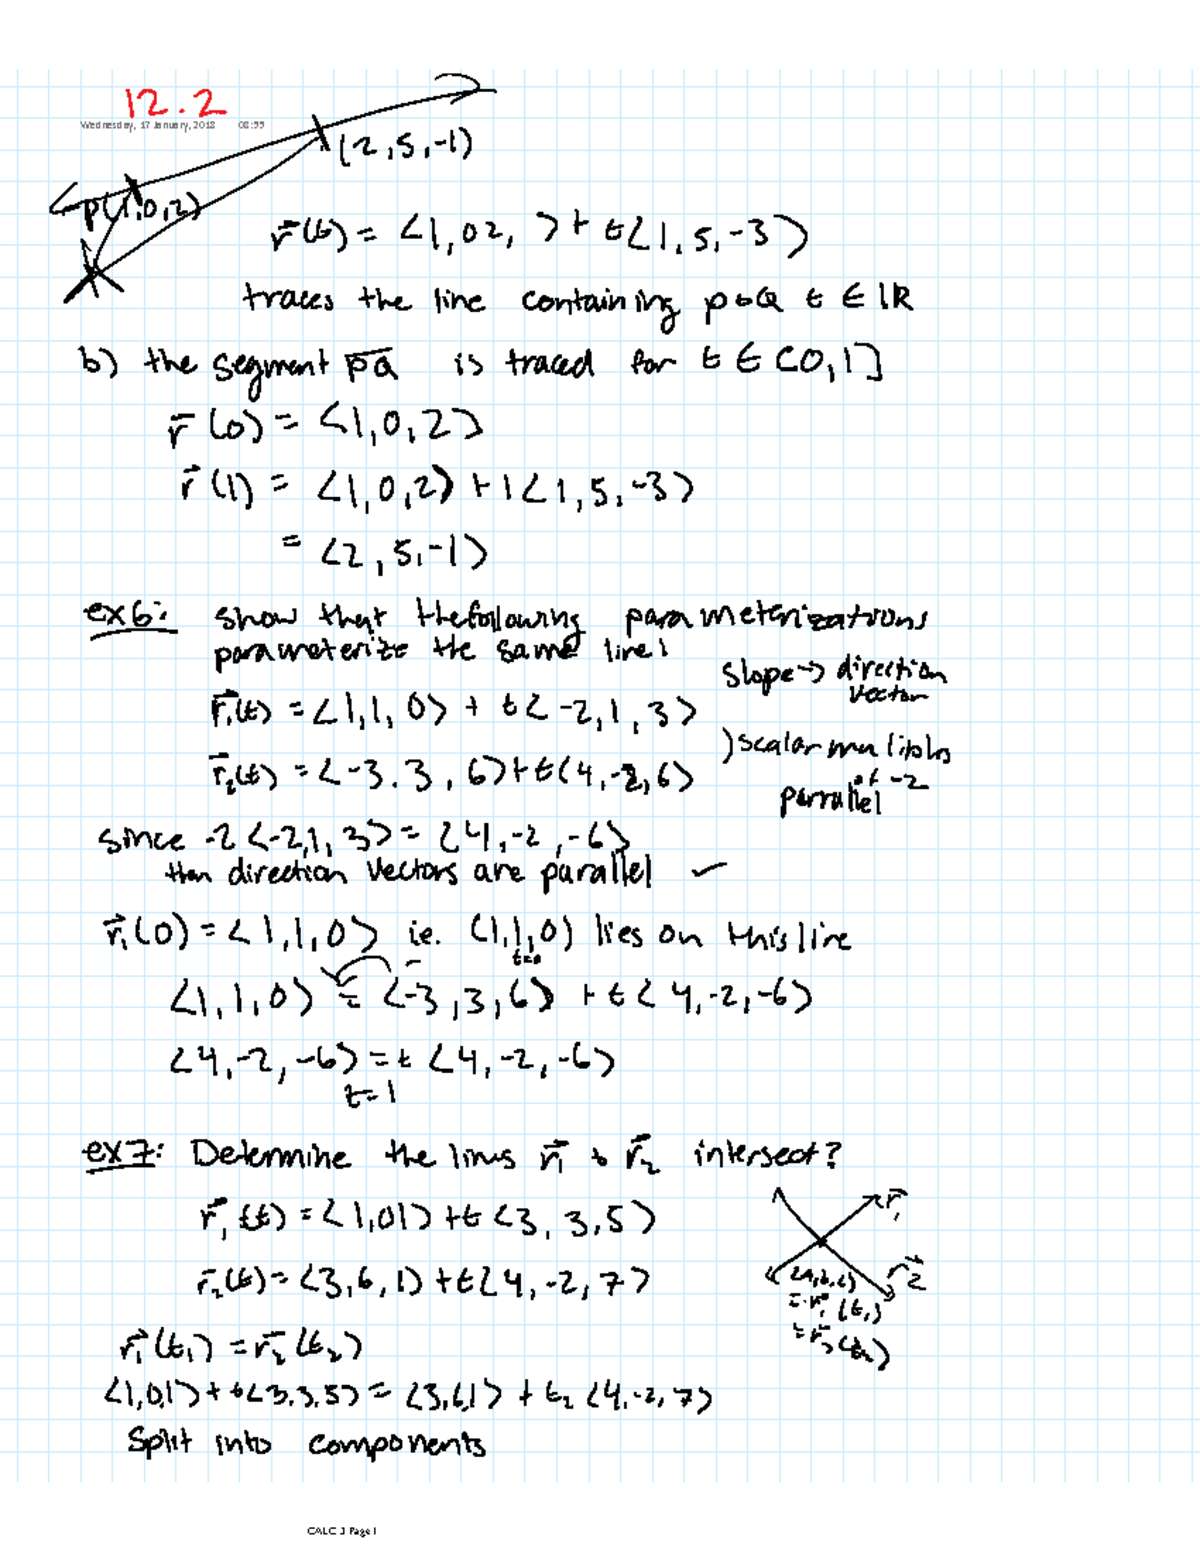 12.2
Wednesday, 17 January, 2018 08:55
(2,5,-1)
P(1,0,2)
r⃗(t) = <1,02, > + t<1,5,-3>
traces the line containing p & Q t ∈ IR
b) the segment PQ is traced for t ∈ [0,1]
r⃗(0) = <1,0,2>
r⃗(1) = <1,0,2> + 1<1,5,-3>
= <2,5,-1>
ex6: show that the following parameterizations
parameterize the same line:
slope → direction
vector
r⃗₁(t) = <1,1,0> + t<-2,1,3>
) scalar multiples
of -2
r⃗₂(t) = <-3.3,6> + t<4,-2,6>
parrallel
since -2<-2,1,3> = <4,-2,-6>
then direction vectors are parallel ✓
r⃗₁(0) = <1,1,0> ie. (1,1,0) lies on this line
t=0
<1,1,0> = <-3,3,6> + t<4,-2,-6>
<4,-2,-6> = t<4,-2,-6>
t=1
ex7: Determine the lines r⃗₁ & r⃗₂ intersect?
r⃗₁(t) = <1,01> + t<3,3,5>
r⃗₁
r⃗₂(t) = <3,6,1> + t<4,-2,7>
r⃗2
(a,b,c)
= r⃗₁(t₁)
= r⃗₂(t₂)
r⃗₁(t₁) = r⃗₂(t₂)
<1,0,1> + t<3,3,5> = <3,6,1> + t₂<4,-2,7>
Split into components
CALC 3 Page 1